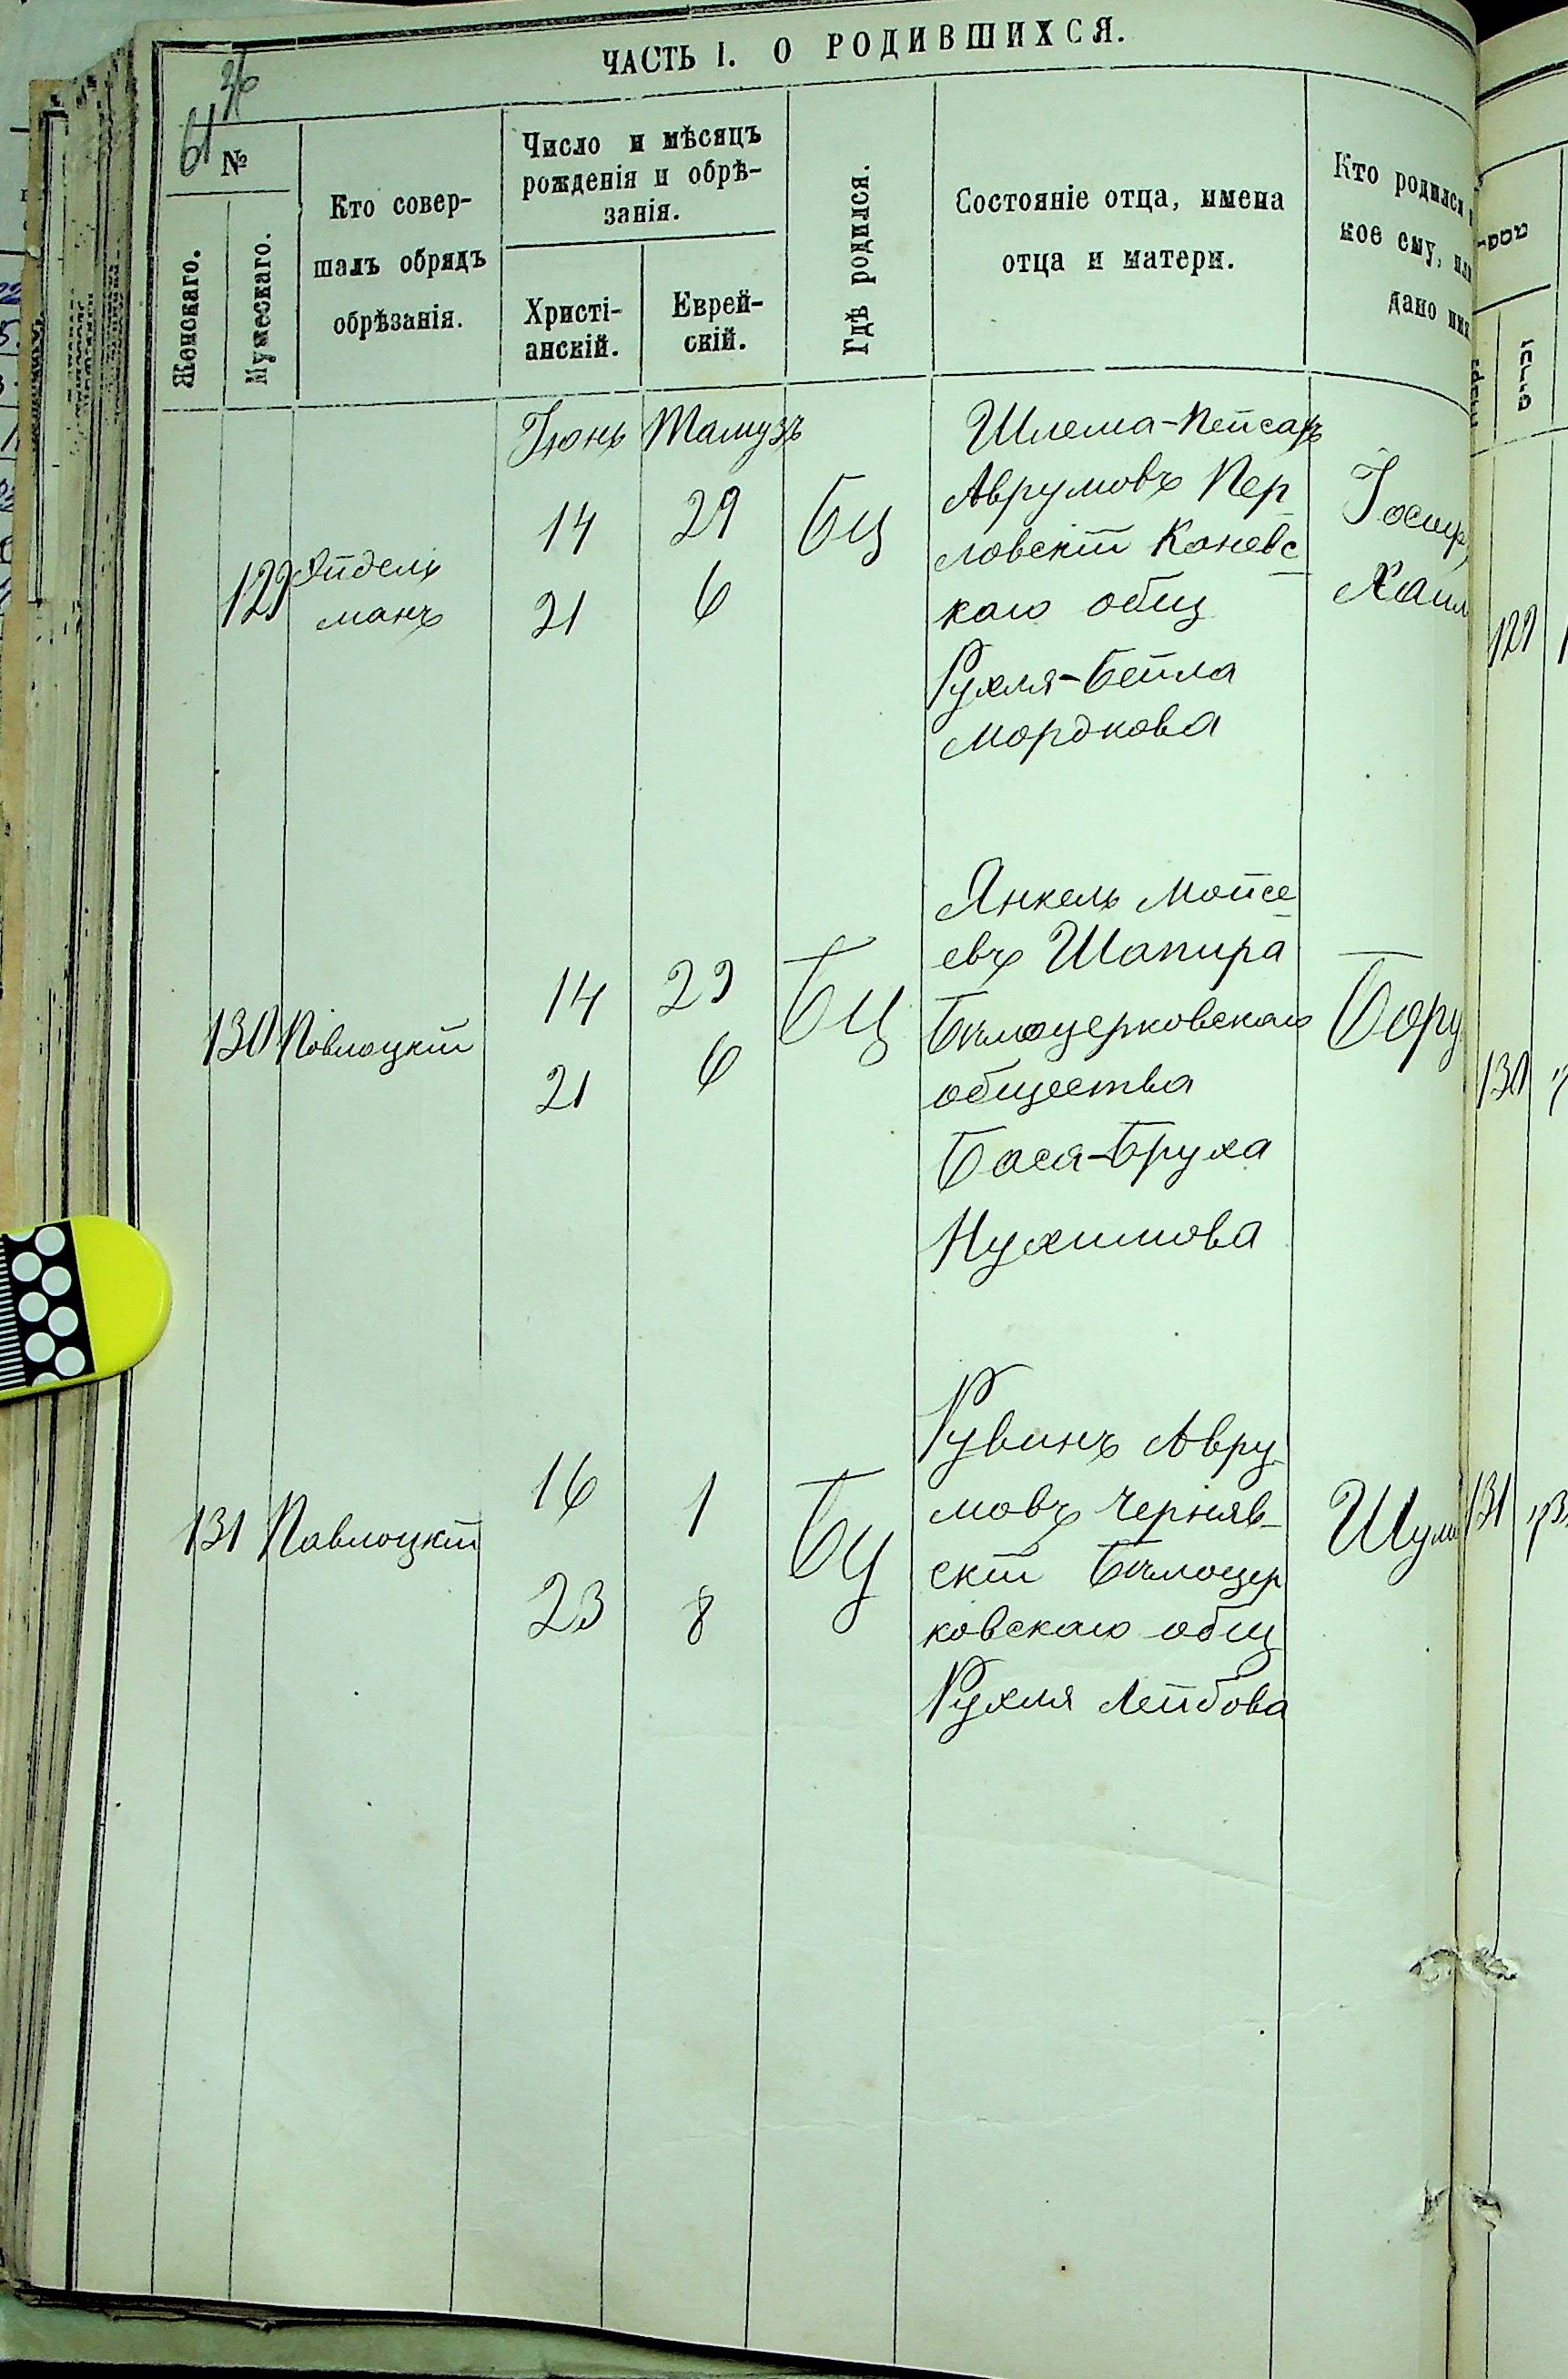 ЧАСТЬ I. О РОДИВШИХСЯ.
61
№
Женскаго.
Мужескаго.
Кто совер-
шалъ обрядъ
обрѣзанія.
Число и мѣсяцъ
рожденія и обрѣ-
занія.
Христі-
анскій.
Еврей-
скій.
Гдѣ родился.
Состояніе отца, имена
отца и матери.
Кто родился
кое ему, или
дано имя
Іюнь Тамузъ
129
Эйдель
манъ
14 29
21 6
БЦ
Шлема-Пейсахъ
Аврумовъ Пер
ловскій Каневс
каго общ
Рухля-Бейла
Мордкова
Іосиф
Хаим
129
130 Повлоцкій
14 29
21 6
БЦ
Янкель Мойсе
евъ Шапира
Бѣлоцерковскаго
общества
Бася-Бруха
Нухимова
Бору
130
131 Павлоцкій
16 1
23 8
БЦ
Рувинъ Авру
мовъ Черняв-
скій Бѣлоцер
ковскаго общ
Рухля Лейбова
Шул
131